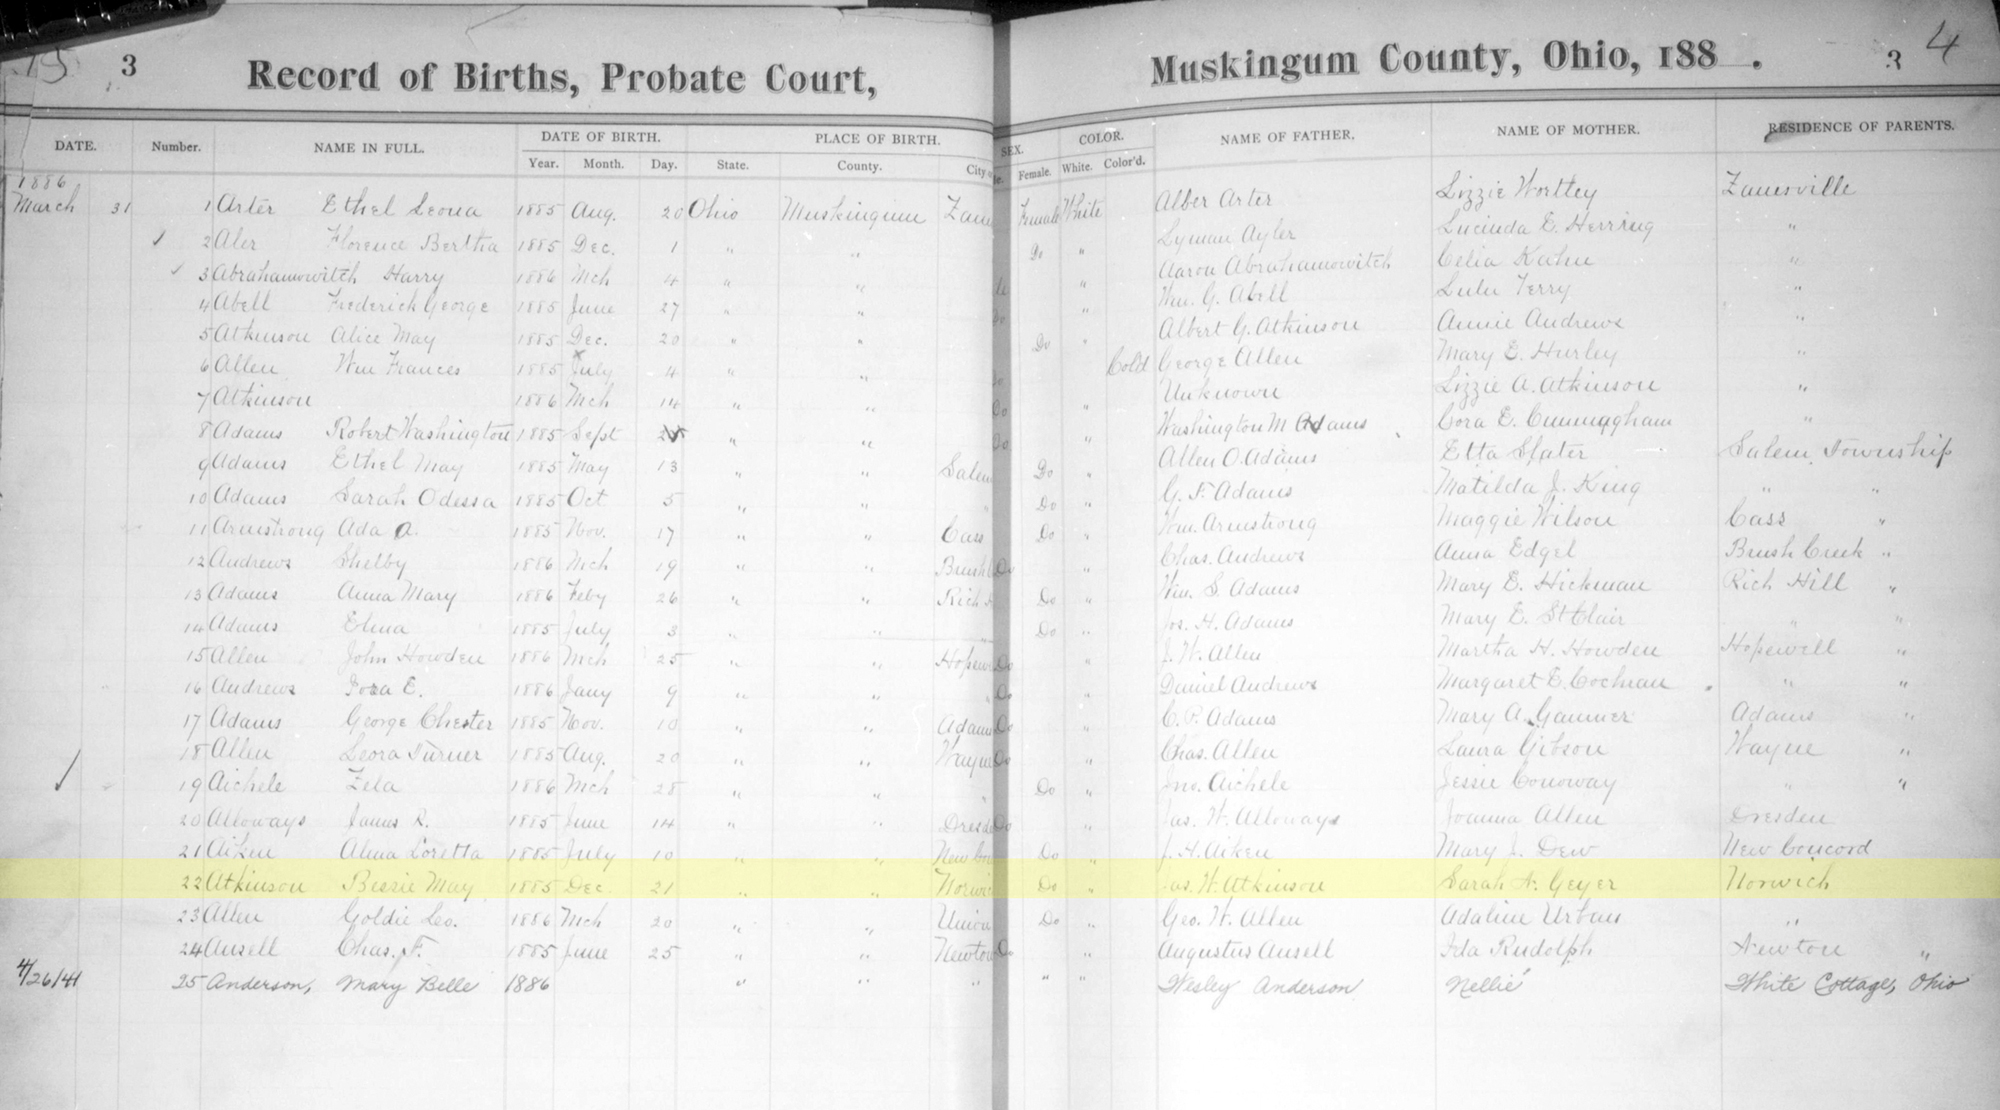 15 3 Record of Births, Probate Court, Muskingum County, Ohio, 188 . 3 4
DATE. Number. NAME IN FULL. DATE OF BIRTH. PLACE OF BIRTH. SEX. COLOR. NAME OF FATHER. NAME OF MOTHER. RESIDENCE OF PARENTS.
Year. Month. Day. State. County. City Female. White. Color'd.
1886
March 31 1 Arter Ethel Leona 1885 Aug. 20 Ohio Muskingum Zane Female White Alber Arter Lizzie Wortley Zanesville
2 Aler Florence Bertha 1885 Dec. 1 " " Do " Lyman Ayler Lucinda E. Herring "
3 Abrahamowitch Harry 1886 Mch 4 " " " Aaron Abrahamowitch Celia Kahn "
4 Abell Frederick George 1885 June 27 " " Do " Wm. G. Abell Lulu Terry "
5 Atkinson Alice May 1885 Dec. 20 " " Do " Albert G. Atkinson Annie Andrews "
6 Allen Wm Frances 1885 July 4 " " Do Cold George Allen Mary E. Hurley "
7 Atkinson 1886 Mch 14 " " Do " Unknown Lizzie A. Atkinson "
8 Adams Robert Washington 1885 Sept " " Do " Washington M Adams Cora E. Cunningham "
9 Adams Ethel May 1885 May 13 " " Salem Do " Allen O. Adams Etta Slater Salem Township
10 Adams Sarah Odessa 1885 Oct 5 " " " Do " G. F. Adams Matilda J. King " "
11 Armstrong Ada A. 1885 Nov. 17 " " Cass Do " Wm. Armstrong Maggie Wilson Cass "
12 Andrews Shelby 1886 Mch 19 " " Brush Do " Chas. Andrews Anna Edgel Brush Creek "
13 Adams Anna Mary 1886 Feby 26 " " Rich H Do " Wm. S. Adams Mary E. Hickman Rich Hill "
14 Adams Elma 1885 July 3 " " " Do " Jos. H. Adams Mary E. St Clair " "
15 Allen John Howden 1886 Mch 25 " " Hopew Do " J. W. Allen Martha H. Howden Hopewell "
16 Andrews E. 1886 Jany 9 " " " Do " Daniel Andrews Margaret E. Cochran " "
17 Adams George Chester 1885 Nov. 10 " " Adams Do " C. P. Adams Mary A. Gaumer Adams "
18 Allen Leora Turner 1885 Aug. 20 " " Wayne Do " Chas. Allen Laura Gibson Wayne "
19 Aichele Zela 1886 Mch 28 " " " Do " Jno. Aichele Jessie Conoway " "
20 Alloways James R. 1885 June 14 " " Dresde Do " Jas. W. Alloways Joanna Allen Dresden
21 Aiken Alma Loretta 1885 July 10 " " New Con Do " J. H. Aiken Mary J. Dew New Concord
22 Atkinson Bessie May 1885 Dec. 21 " " Norwic Do " Jas. W. Atkinson Sarah A. Geyer Norwich
23 Allen Goldie Leo. 1886 Mch 20 " " Union Do " Geo. W. Allen Adaline Urban "
24 Ansell Chas. F. 1885 June 25 " " Newton Do " Augustus Ansell Ida Rudolph Newton "
4/26/41 25 Anderson, Mary Belle 1886 " " " " " Wesley Anderson Nellie White Cottage, Ohio